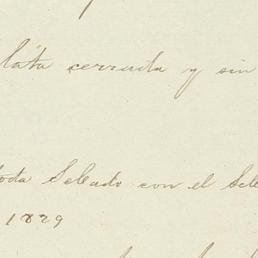 lata cerrada y sin
toda Selado con el Sel
1829